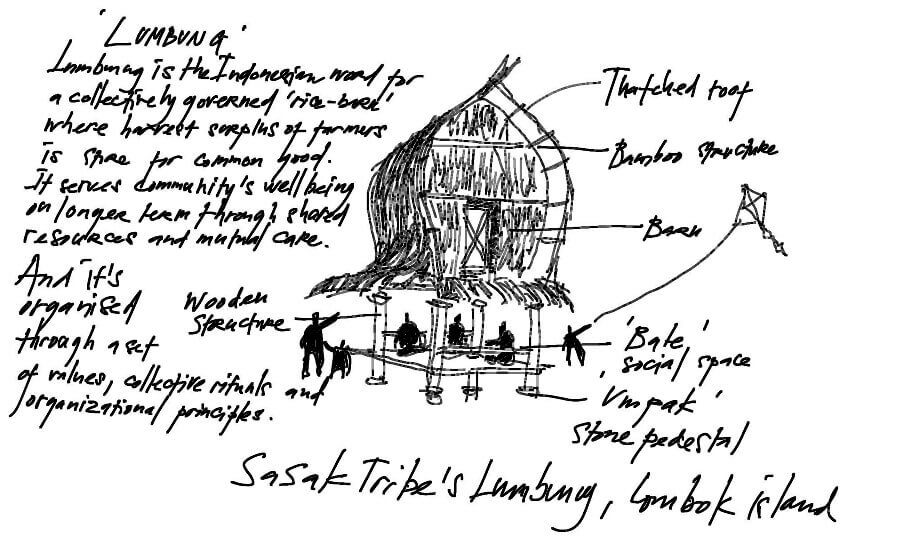 'LUMBUNG'
Lumbung is the Indonesian word for
a collectively governed 'rice-barn'
where harvest surplus of farmers
is store for common good.
It serves community's well being
on longer term through shared
resources and mutual care.
And it's
organised
through a set
of values, collective rituals and
organizational principles.
Wooden
structure
Thatched roof
Bamboo structure
Barn
'Bale'
social space
'Umpak'
Stone pedestal
Sasak Tribe's Lumbung, Lombok island